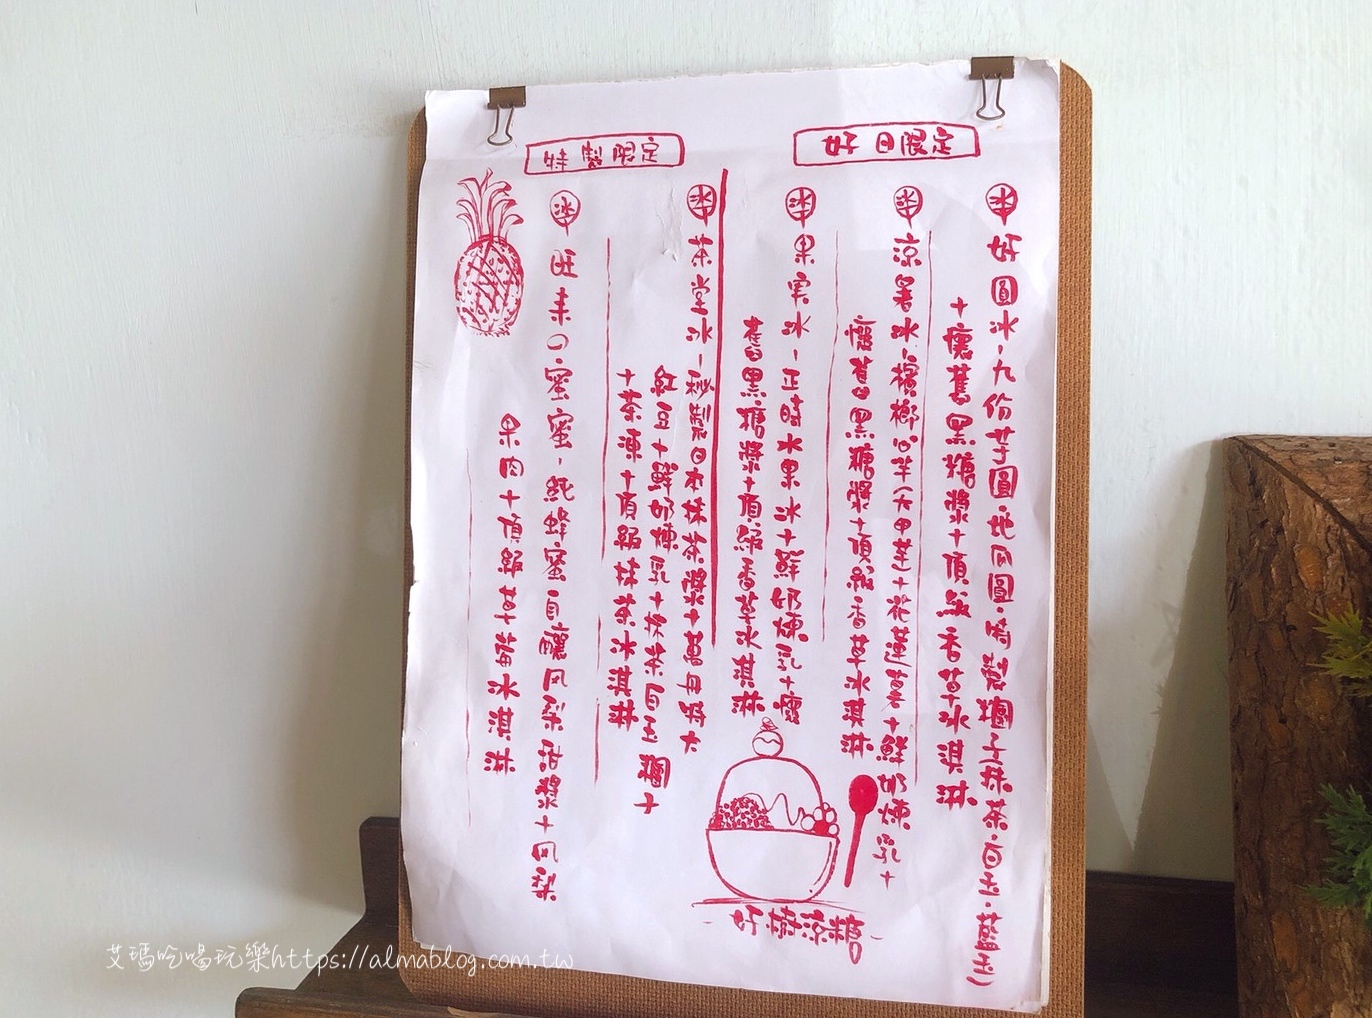 好日限定
冰 好圓冰-九份芋圓.地瓜圓.特製糰子(抹茶.白玉.藍玉)
+懷舊黑糖漿+頂級香草冰淇淋
冰 涼暑冰-檳榔心芋(大甲芋)+花蓮薯+鮮奶煉乳+
懷舊黑糖漿+頂級香草冰淇淋
冰 果実冰-正時水果冰+鮮奶煉乳+懷
舊黑糖漿+頂級香草冰淇淋
特製限定
冰 茶堂冰-秘製日本抹茶漿+萬丹特大
紅豆+鮮奶煉乳+抹茶白玉糰+
+茶凍+頂級抹茶冰淇淋
冰 旺来の蜜蜜-純蜂蜜自釀风梨甜漿+风梨
果肉+頂級草莓冰淇淋
-好樹涼糖-
艾瑪吃喝玩樂https://almablog.com.tw